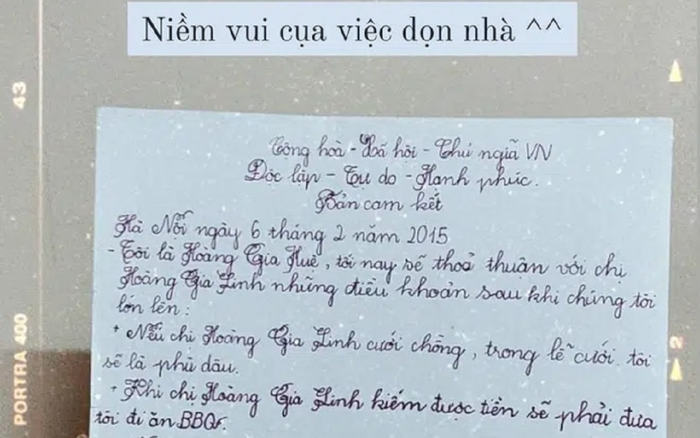 Niềm vui cụa việc dọn nhà ^^
43
PORTRA 400
2
Công hoà - Xã hôi - Chủ nghiã VN
Dôc lâp - Tư do - Hanh phúc.
Bản cam kết
Hà Nôi ngày 6 tháng 2 năm 2015
- Tôi là Hoàng Gia Huê, tôi nay sẽ thoả thuân với chị
Hoàng Gia Linh những điều khoản sau khi chúng tôi
lớn lên :
+ Nếu chi Hoàng Gia Linh cưới chồng, trong lễ cưới tôi
sẽ là phù dâu.
+ Khi chị Hoàng Gia Linh kiếm được tiền sẽ phải đưa
tôi đi ăn BBQ.